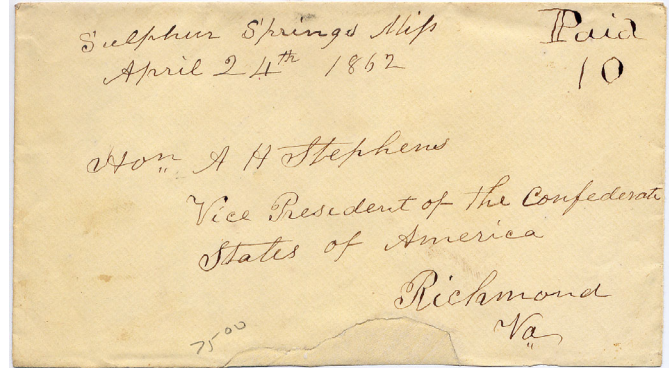 Sulphur Springs Miss
April 24th 1862
Paid
10
Hon A H Stephens
Vice President of the Confederate
States of America
Richmond
Va
7500